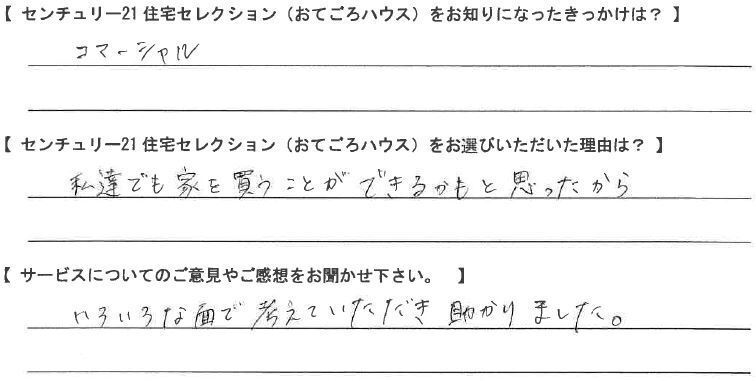 【 センチュリー21 住宅セレクション（おてごろハウス）をお知りになったきっかけは？ 】
コマーシャル
【 センチュリー21 住宅セレクション（おてごろハウス）をお選びいただいた理由は？ 】
私達でも家を買うことができるかもと思ったから
【 サービスについてのご意見やご感想をお聞かせ下さい。 】
いろいろな面で考えていただき助かりました。